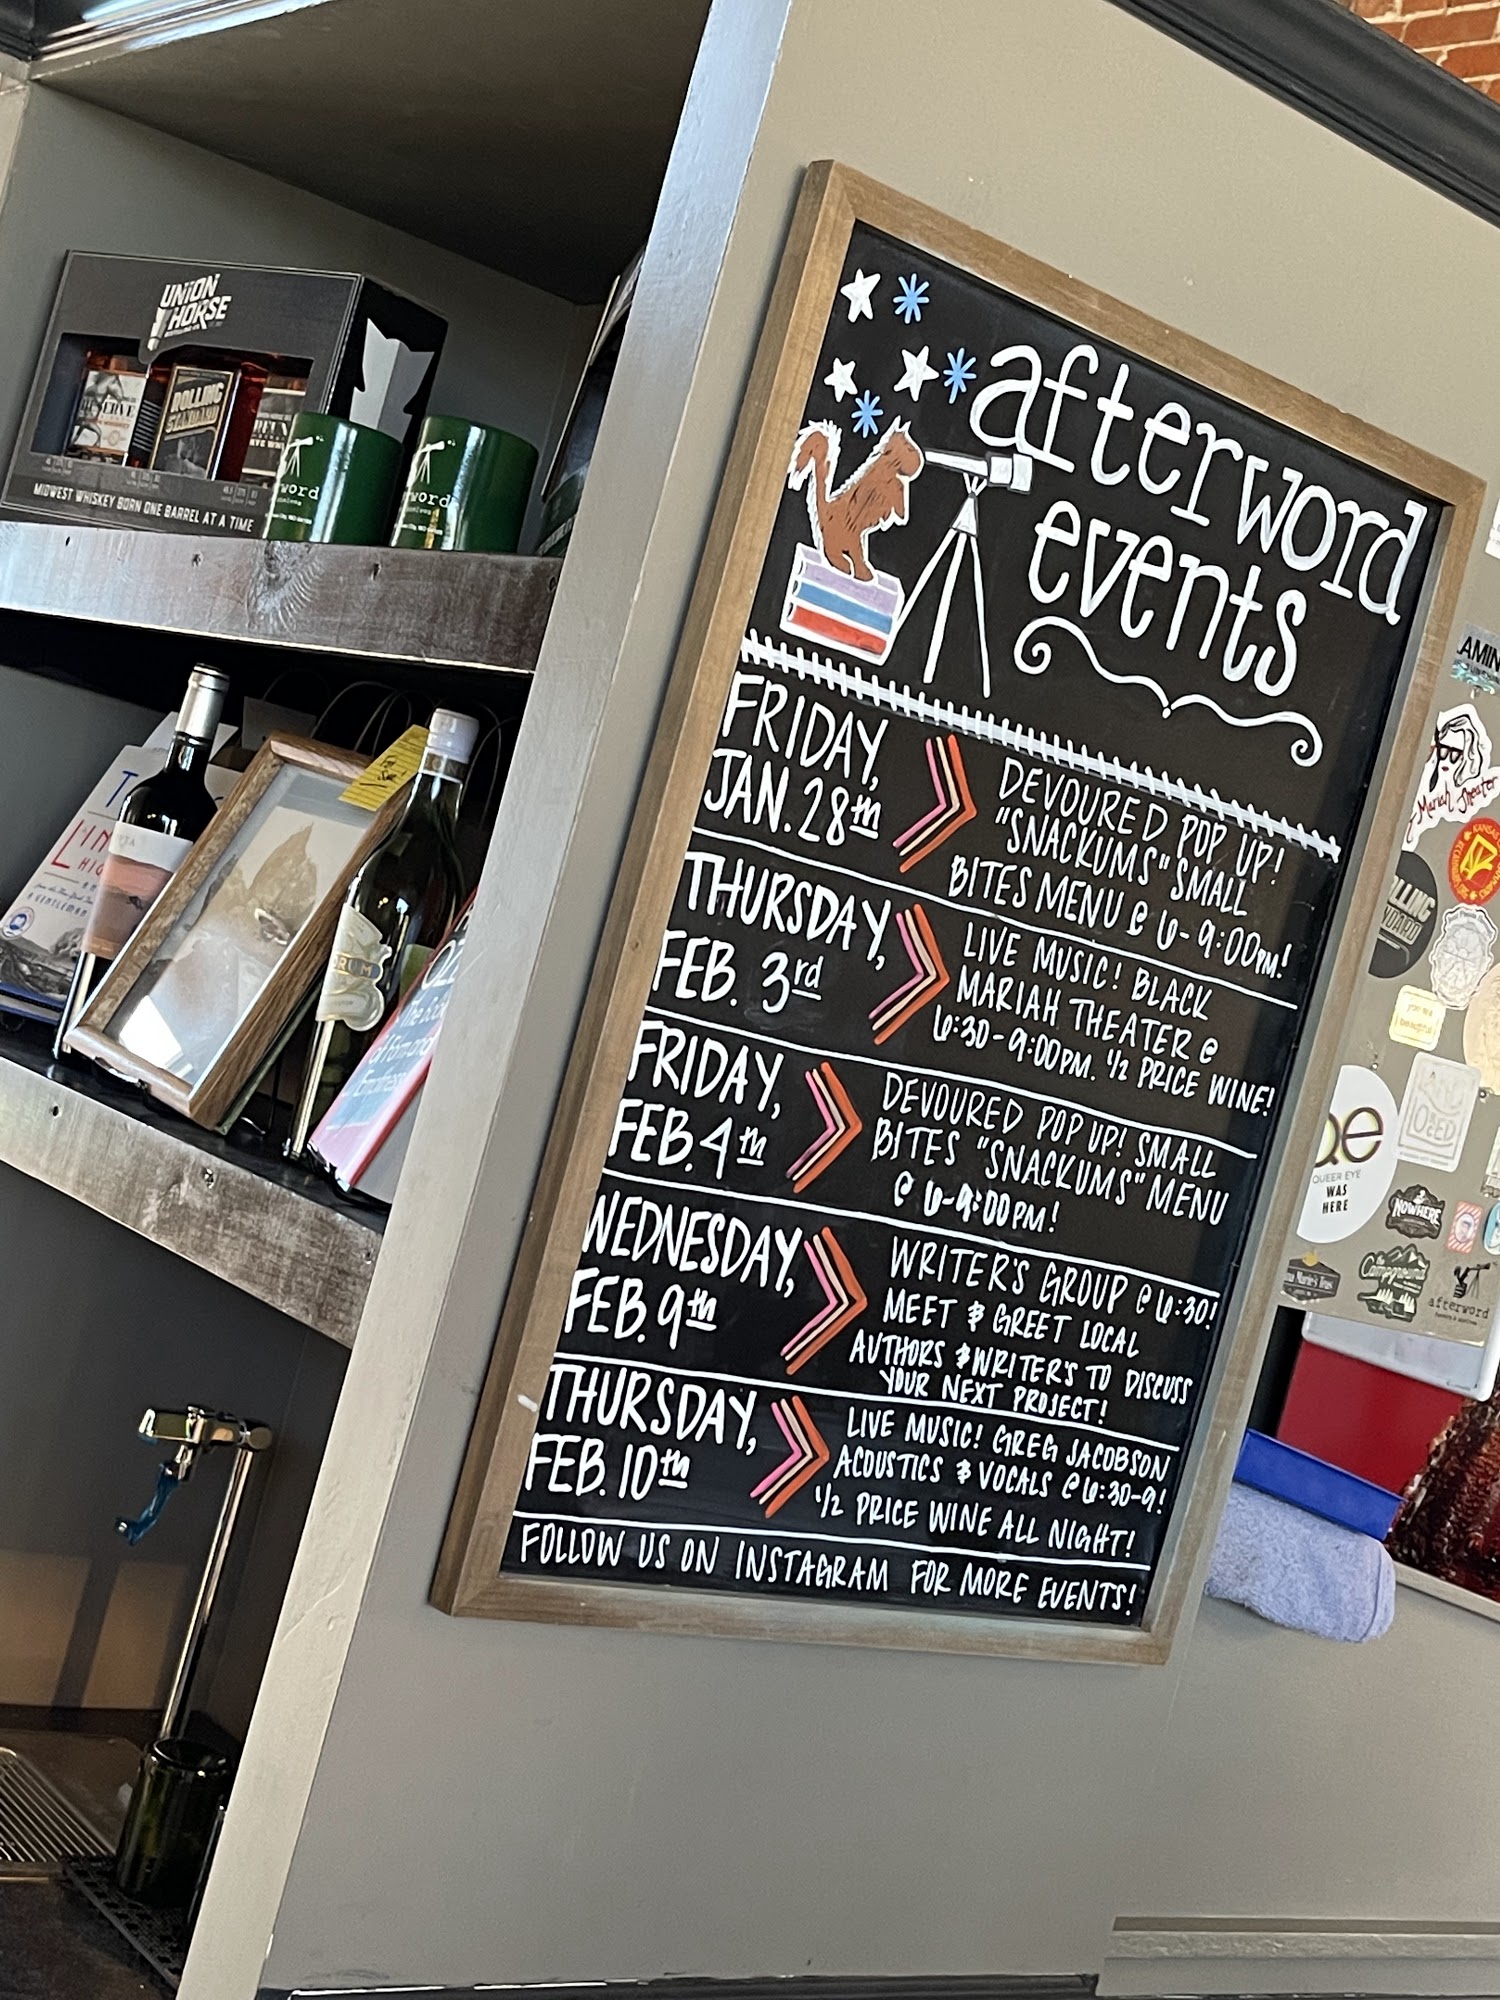 afterword
events
FRIDAY,
JAN. 28th
DEVOURED POP UP!
"SNACKUMS" SMALL
BITES MENU @ 6-9:00PM!
THURSDAY,
FEB. 3rd
LIVE MUSIC! BLACK
MARIAH THEATER @
6:30-9:00PM. 1/2 PRICE WINE!
FRIDAY,
FEB. 4th
DEVOURED POP UP! SMALL
BITES "SNACKUMS" MENU
@ 6-9:00PM!
WEDNESDAY,
FEB. 9th
WRITER'S GROUP @ 6:30!
MEET & GREET LOCAL
AUTHORS & WRITER'S TO DISCUSS
YOUR NEXT PROJECT!
THURSDAY,
FEB. 10th
LIVE MUSIC! GREG JACOBSON
ACOUSTICS & VOCALS @ 6:30-9!
1/2 PRICE WINE ALL NIGHT!
FOLLOW US ON INSTAGRAM FOR MORE EVENTS!
UNION
HORSE
ROLLING
STANDARD
MIDWEST WHISKEY BORN ONE BARREL AT A TIME
word
word
RUM
Mariah Theater
QUEER EYE
WAS
HERE
NOWHERE
Campground
afterword